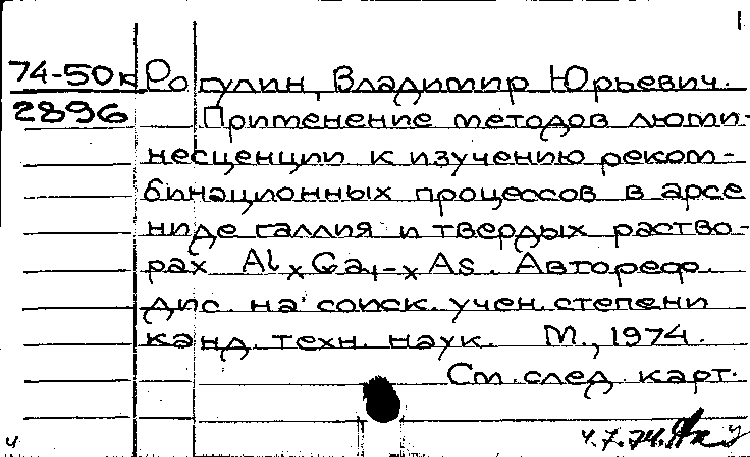 1
74-50к Рогулин, Владимир Юрьевич.
2896 Применение методов люми-
несценции к изучению реком-
бинационных процессов в арсе
ниде галлия и твердых раство-
рах AlxGa1-xAs. Автореф.
дис. на соиск. учен. степени
канд. техн. наук. М., 1974.
См. след. карт.
ч 4.7.74.